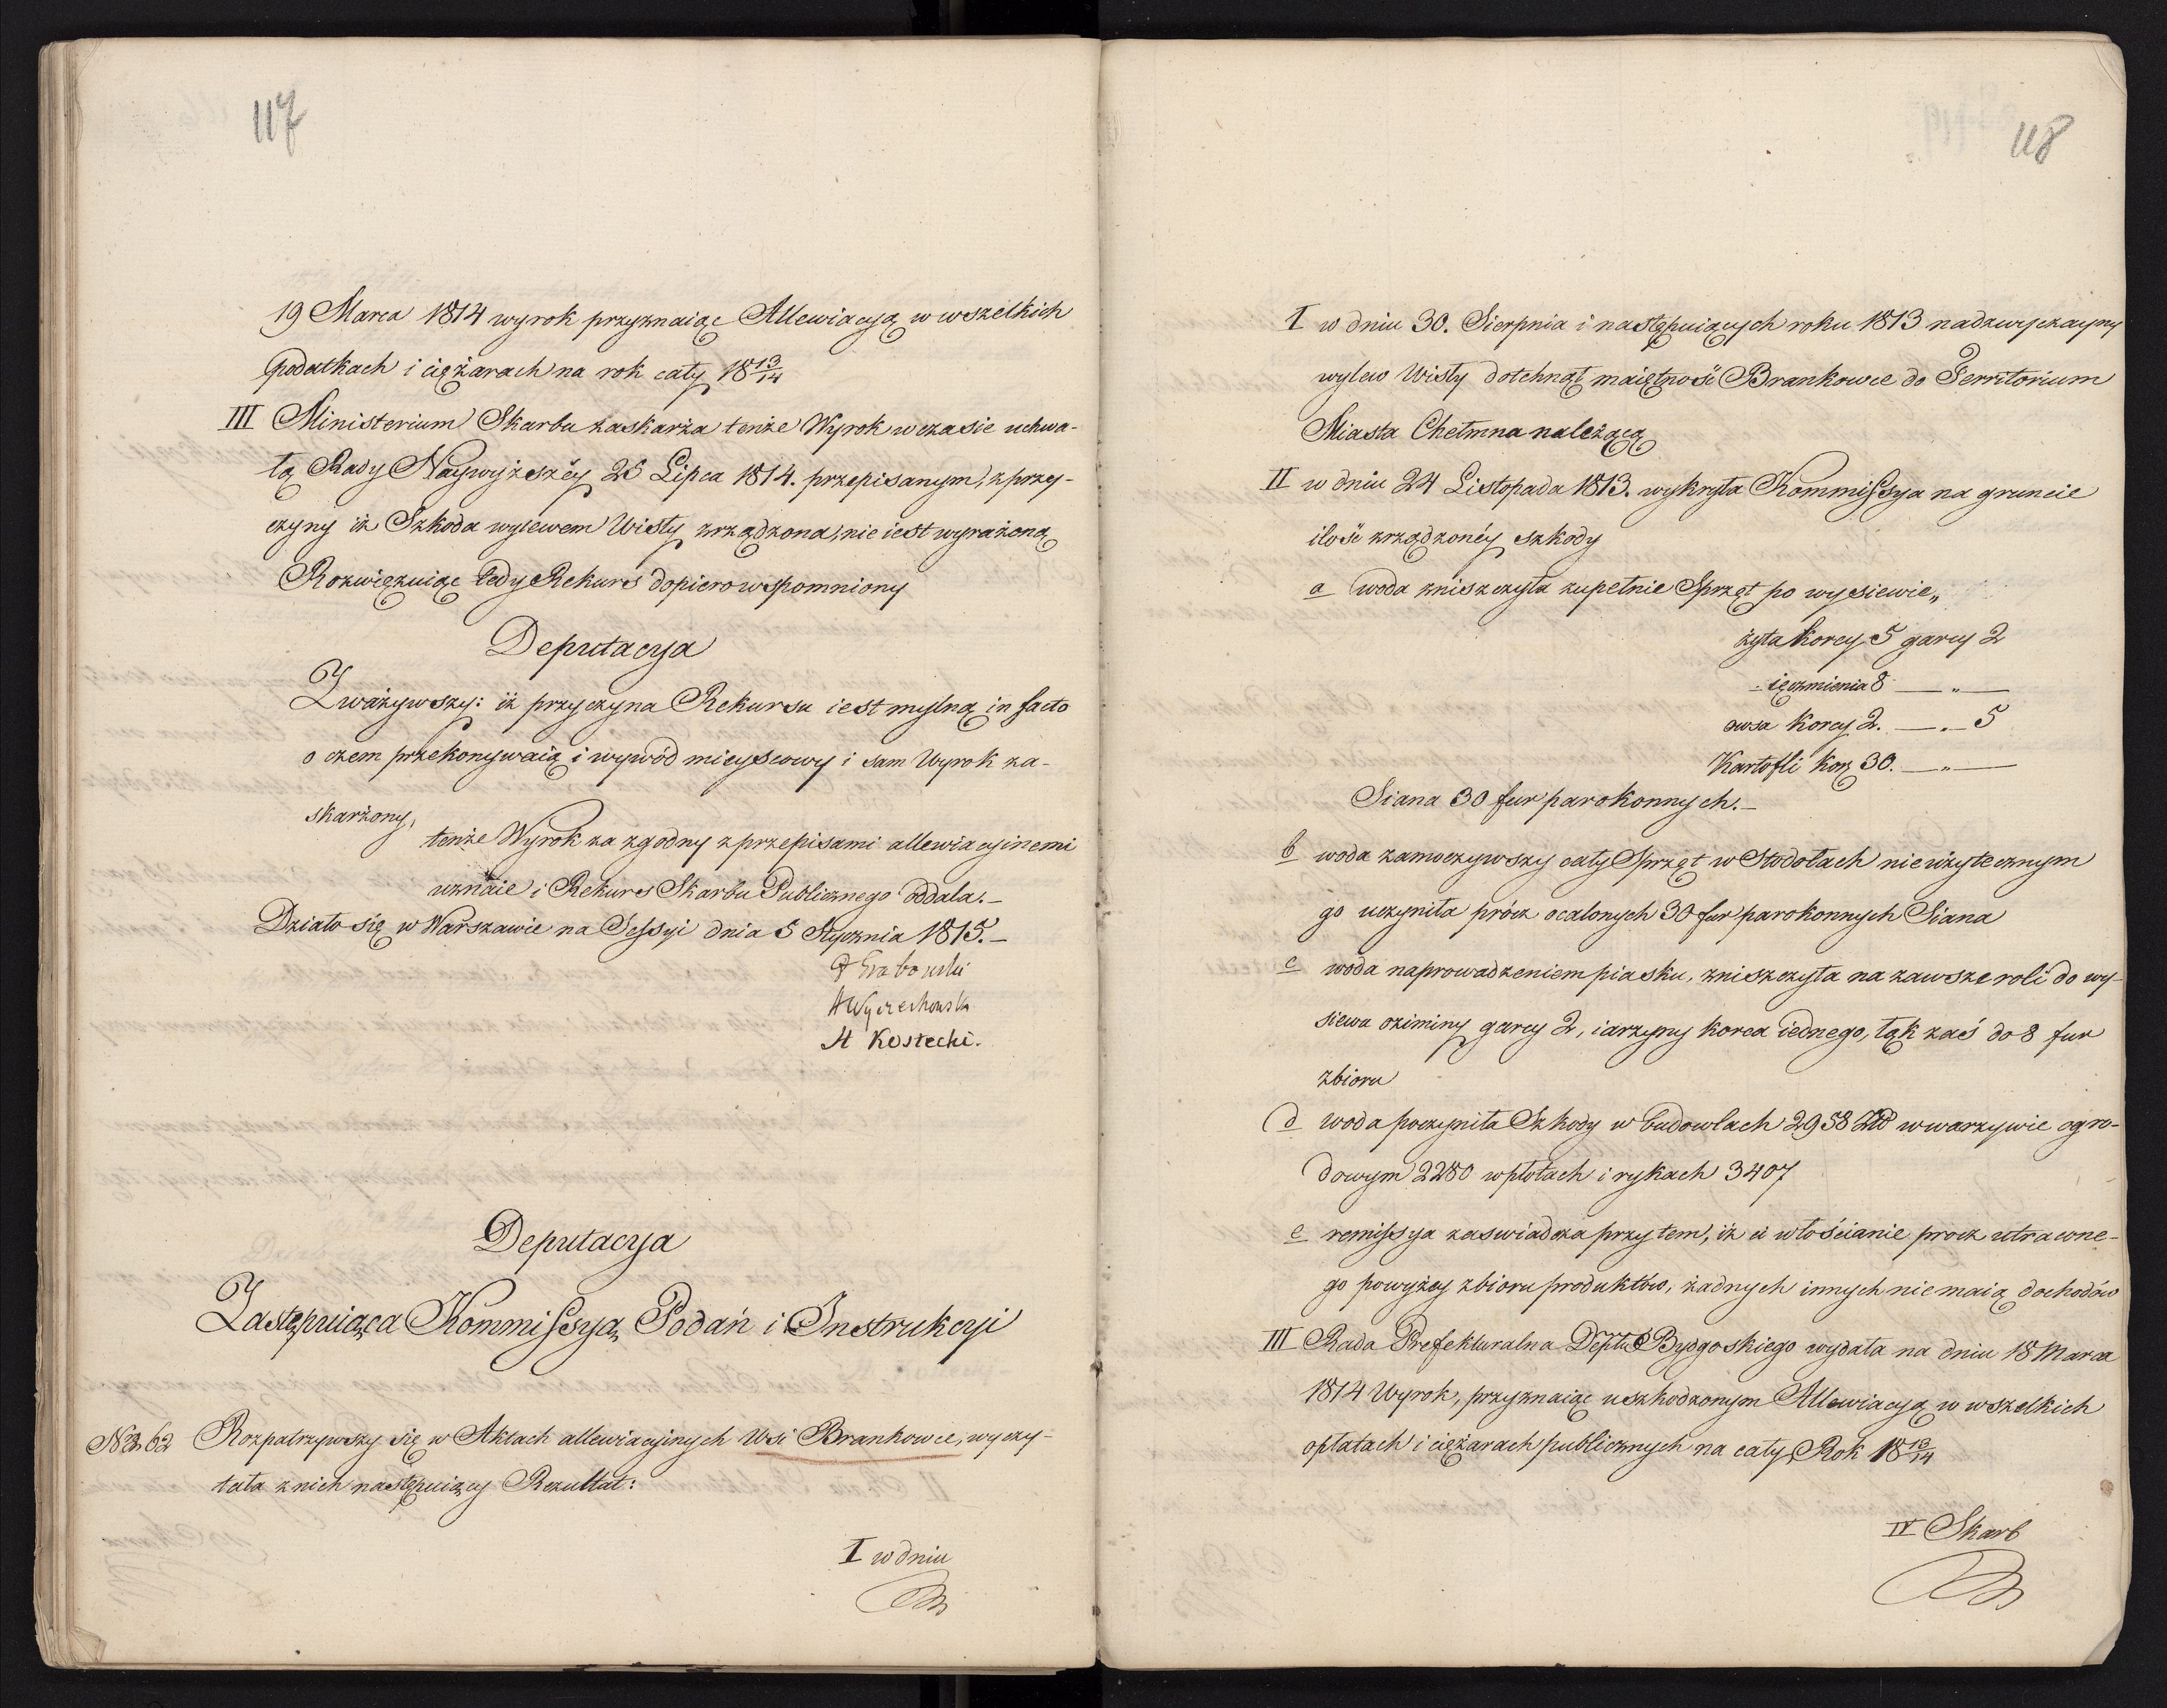 117
19 Marca 1814 wyrok przyznaiąc Allewiacyą w wszelkich
podatkach i ciężarach na rok cały 18 13/14
III Ministerium Skarbu zaskarża tenże Wyrok w czasie uchwa-
łą Rady Naywyższéy 26 Lipca 1814. przepisanym, z przy-
czyny iż Szkoda wylewem Wisły zrządzona, nie iest wyrażoną
Rozwięzuiąc tedy Rekurs dopiero wspomniony
Deputacya
Zważywszy: iż przyczyna Rekursu iest mylną in facto
o czem przekonywaią i wywód mieyscowy i sam Wyrok za-
skarżony,
tenże Wyrok za zgodny z przepisami allewiacyinemi
uznaie i Rekurs Skarbu Publicznego oddala. –
Działo się w Warszawie na Sessyi dnia 5 Stycznia 1815. –
Grabowski
AWyczechowski
A Kostecki.
Deputacya
Zastępuiąca Kommissyą Podań i Instrukcyi
62 Rozpatrzywszy się w Aktach allewiacyinych Wsi Brankowce, wyczy-
tała z nich następuiący Rezultat:
I w dniu
118
I w dniu 30. Sierpnia i następuiących roku 1813 nadzwyczayny
wylew Wisły dotchnął maiętność Brankowce do Territorium
Miasta Chełmna należącą
II w dniu 24 Listopada 1813. wykryła Kommissya na gruncie
ilość zrządzonéy szkody
a woda zniszczyła zupełnie Sprzęt po wysiewie„
żyta korcy 5 garcy 2
– ięczmienia 8 — „ —
owsa korcy 2. — „ — 5
Kartofli korcy 30. — „ —
Siana 30 fur parokonnych. –
b woda zamoczywszy cały Sprzęt w Stodołach nieużytecznym
go uczyniła prócz ocalonych 30 fur parokonnych Siana
c woda naprowadzeniem piasku, zniszczyła na zawsze roli do wy-
siewu oziminy garcy 2, iarzyny korca iednego, łąk zaś do 8 fur
zbioru
d woda poczyniła Szkody w budowlach 2958 Złł w warzywie ogro-
dowym 2280 w płotach i rykach 3407
e remissya zaświadcza przytem, iż ci włościanie procz utracone-
go powyżey zbioru produktów, żadnych innych nie maią dochodów
III Rada Prefekturalna Deptu Bydgoskiego wydała na dniu 18 Marca
1814 Wyrok, przyznaiąc uszkodzonym Allewiacyą w wszelkich
opłatach i ciężarach publicznych na cały Rok 18 13/14
IV Skarb